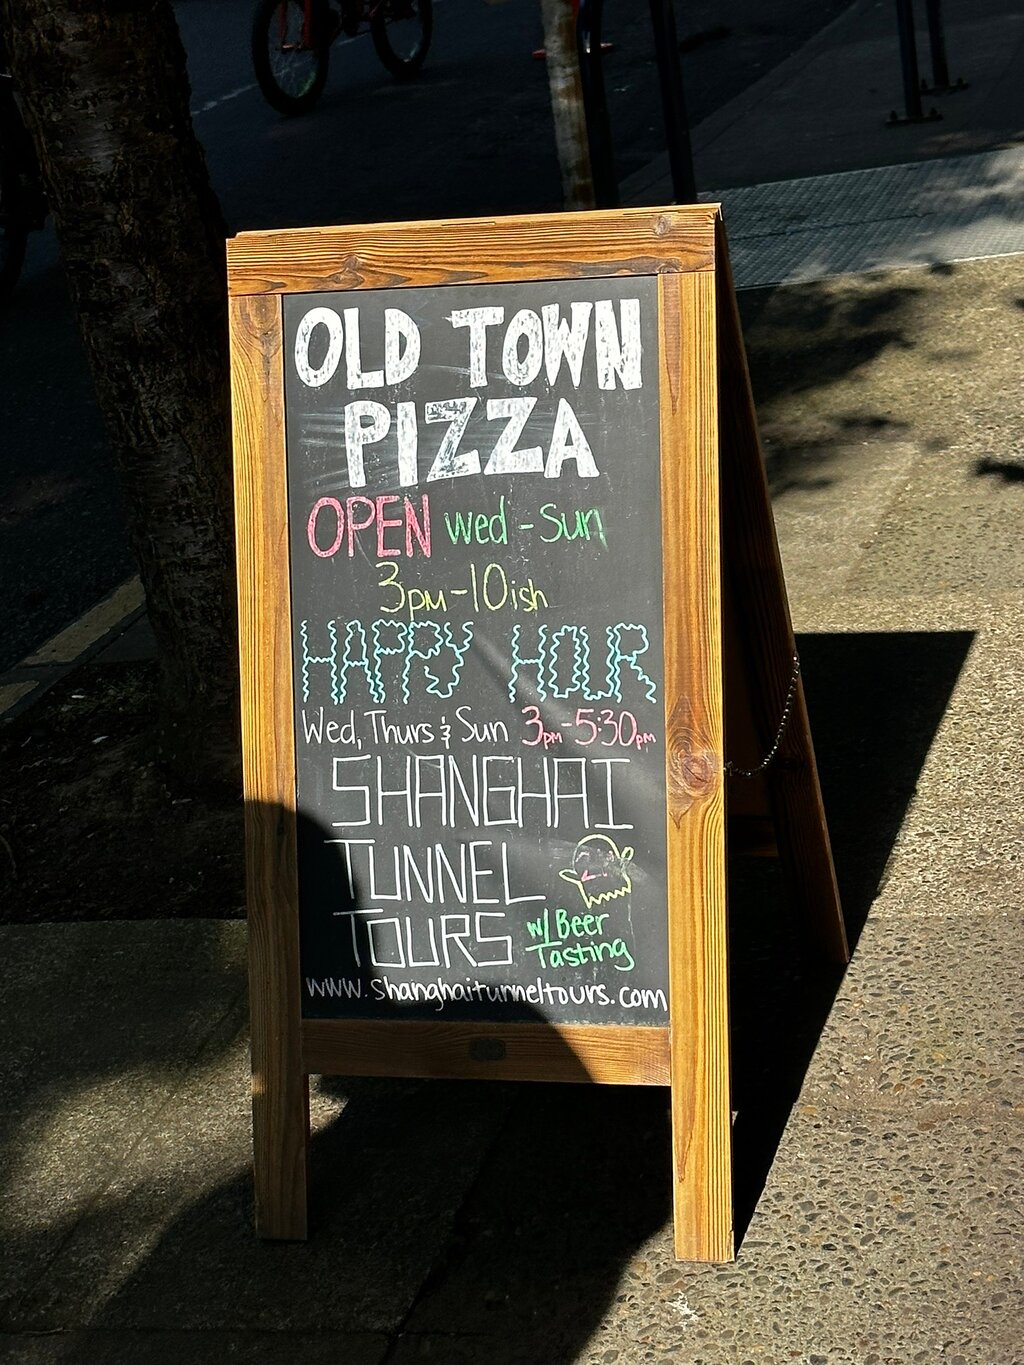 OLD TOWN
PIZZA
OPEN Wed - Sun
3pm - 10ish
HAPPY HOUR
Wed, Thurs & Sun 3pm - 5:30pm
SHANGHAI
TUNNEL
TOURS w/ Beer
Tasting
www.shanghaitunneltours.com